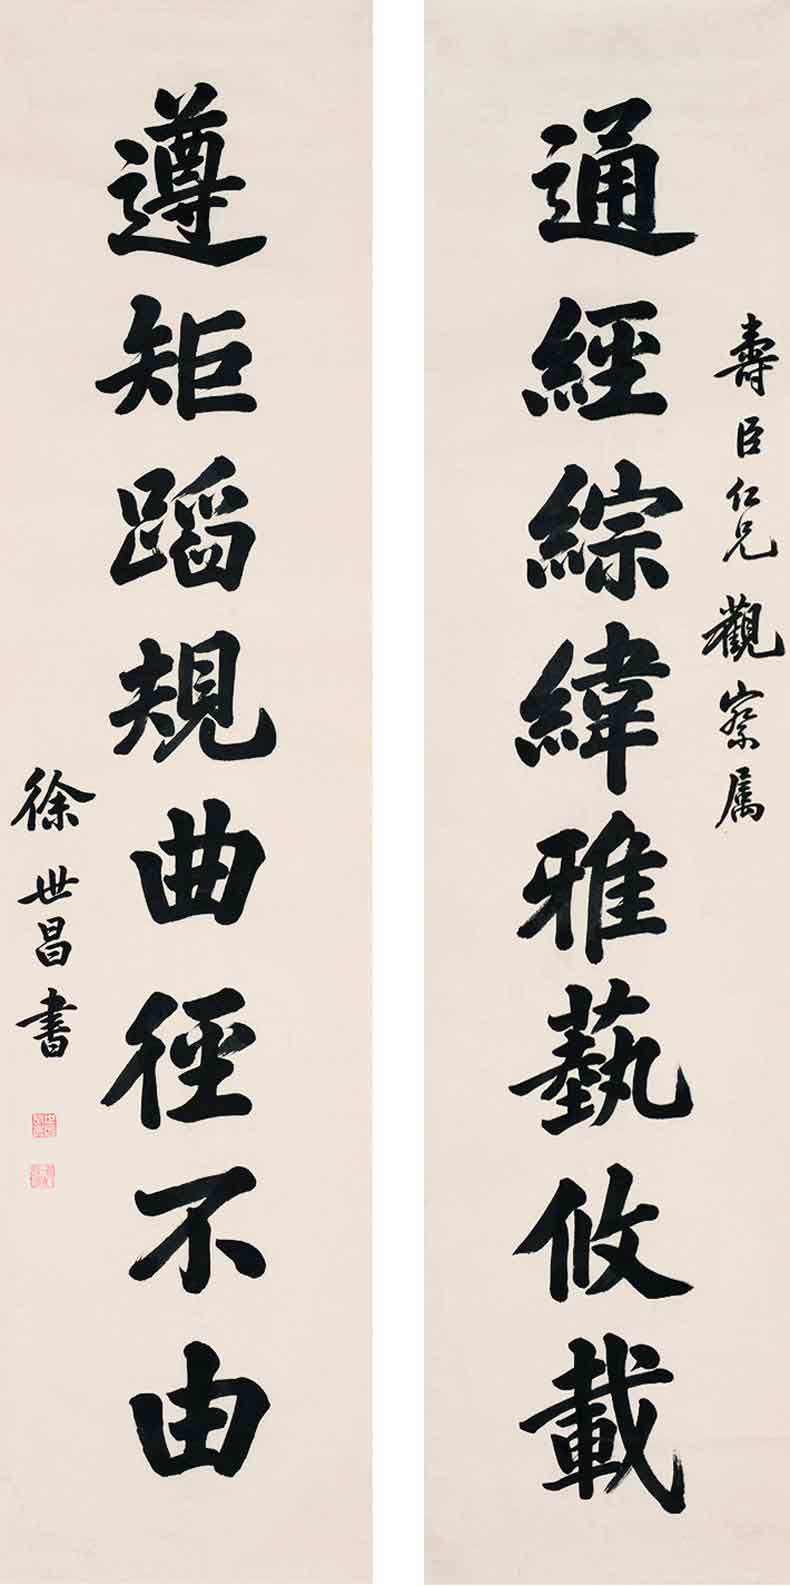 壽臣仁兄觀察属
通經綜緯雅藝攸載
遵矩蹈規曲徑不由
徐世昌書